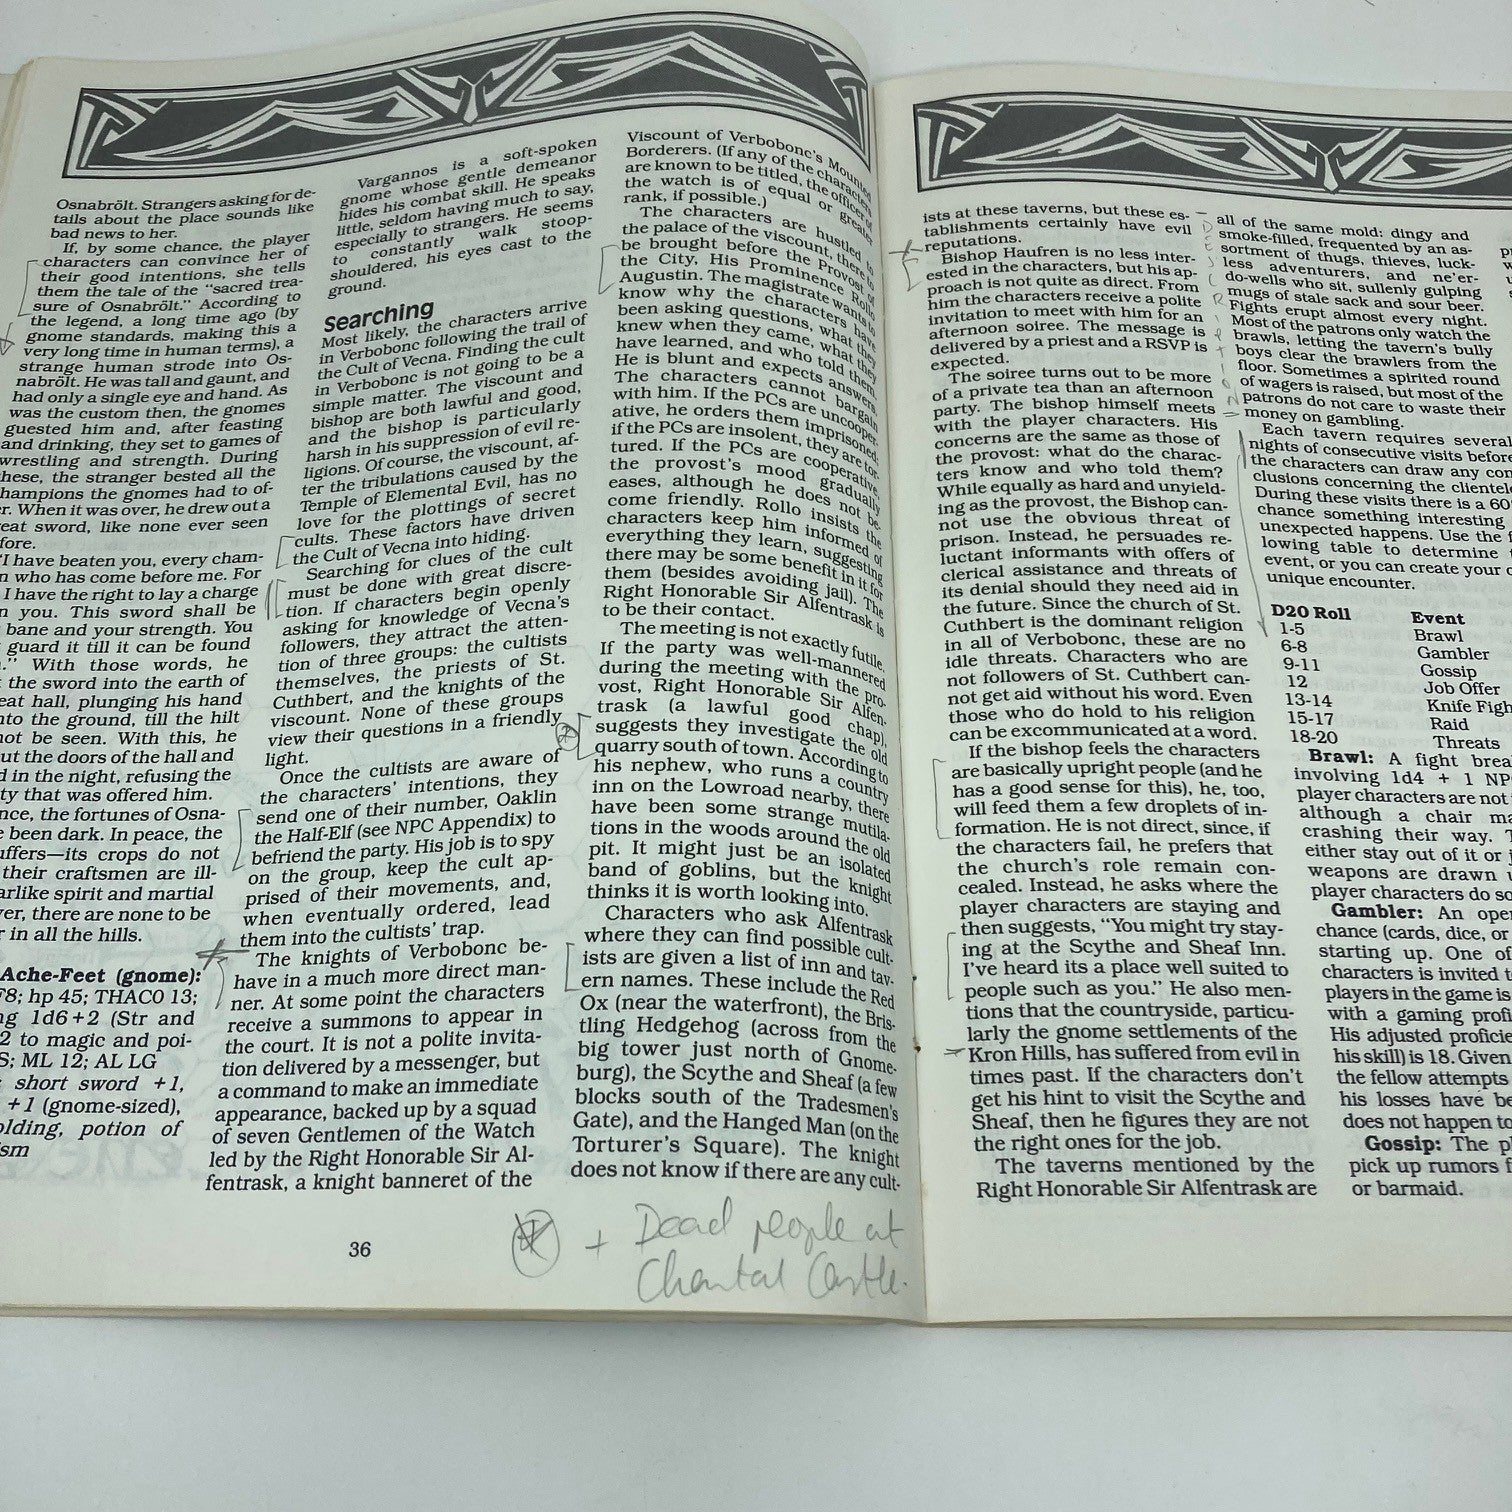 Osnabrölt. Strangers asking for de-
tails about the place sounds like
bad news to her.
If, by some chance, the player
characters can convince her of
their good intentions, she tells
them the tale of the "sacred trea-
sure of Osnabrölt." According to
the legend, a long time ago (by
gnome standards, making this a
very long time in human terms), a
strange human strode into Os-
nabrölt. He was tall and gaunt, and
had only a single eye and hand. As
was the custom then, the gnomes
guested him and, after feasting
and drinking, they set to games of
wrestling and strength. During
hese, the stranger bested all the
hampions the gnomes had to of-
r. When it was over, he drew out a
eat sword, like none ever seen
fore.
"I have beaten you, every cham-
n who has come before me. For
I have the right to lay a charge
n you. This sword shall be
bane and your strength. You
guard it till it can be found
." With those words, he
the sword into the earth of
eat hall, plunging his hand
nto the ground, till the hilt
not be seen. With this, he
ut the doors of the hall and
d in the night, refusing the
ty that was offered him.
nce, the fortunes of Osna-
e been dark. In peace, the
uffers—its crops do not
their craftsmen are ill-
arlike spirit and martial
ver, there are none to be
r in all the hills.
Ache-Feet (gnome):
F8; hp 45; THACO 13;
ng 1d6+2 (Str and
2 to magic and poi-
S; ML 12; AL LG
short sword +1,
+1 (gnome-sized),
olding, potion of
ism
Vargannos is a soft-spoken
gnome whose gentle demeanor
hides his combat skill. He speaks
little, seldom having much to say,
especially to strangers. He seems
to constantly walk stoop-
shouldered, his eyes cast to the
ground.
Searching
Most likely, the characters arrive
in Verbobonc following the trail of
the Cult of Vecna. Finding the cult
in Verbobonc is not going to be a
simple matter. The viscount and
bishop are both lawful and good,
and the bishop is particularly
harsh in his suppression of evil re-
ligions. Of course, the viscount, af-
ter the tribulations caused by the
Temple of Elemental Evil, has no
love for the plottings of secret
cults. These factors have driven
the Cult of Vecna into hiding.
Searching for clues of the cult
must be done with great discre-
tion. If characters begin openly
asking for knowledge of Vecna's
followers, they attract the atten-
tion of three groups: the cultists
themselves, the priests of St.
Cuthbert, and the knights of the
viscount. None of these groups
view their questions in a friendly
light.
Once the cultists are aware of
the characters' intentions, they
send one of their number, Oaklin
the Half-Elf (see NPC Appendix) to
befriend the party. His job is to spy
on the group, keep the cult ap-
prised of their movements, and,
when eventually ordered, lead
them into the cultists' trap.
The knights of Verbobonc be-
have in a much more direct man-
ner. At some point the characters
receive a summons to appear in
the court. It is not a polite invita-
tion delivered by a messenger, but
a command to make an immediate
appearance, backed up by a squad
of seven Gentlemen of the Watch
led by the Right Honorable Sir Al-
fentrask, a knight banneret of the
Viscount of Verbobonc's Mounted
Borderers. (If any of the characters
are known to be titled, the officer of
the watch is of equal or greater
rank, if possible.)
The characters are hustled to
the palace of the viscount, there to
be brought before the Provost of
the City, His Prominence Rollo
Augustin. The magistrate wants to
know why the characters have
been asking questions, what they
knew when they came, what they
have learned, and who told them.
He is blunt and expects answers.
The characters cannot bargain
with him. If the PCs are uncooper-
ative, he orders them imprisoned;
if the PCs are insolent, they are tor-
tured. If the PCs are cooperative,
the provost's mood gradually
eases, although he does not be-
come friendly. Rollo insists the
characters keep him informed of
everything they learn, suggesting
there may be some benefit in it for
them (besides avoiding jail). The
Right Honorable Sir Alfentrask is
to be their contact.
The meeting is not exactly futile.
If the party was well-mannered
during the meeting with the pro-
vost, Right Honorable Sir Alfen-
trask (a lawful good chap),
suggests they investigate the old
quarry south of town. According to
his nephew, who runs a country
inn on the Lowroad nearby, there
have been some strange mutila-
tions in the woods around the old
pit. It might just be an isolated
band of goblins, but the knight
thinks it is worth looking into.
Characters who ask Alfentrask
where they can find possible cult-
ists are given a list of inn and tav-
ern names. These include the Red
Ox (near the waterfront), the Bris-
tling Hedgehog (across from the
big tower just north of Gnome-
burg), the Scythe and Sheaf (a few
blocks south of the Tradesmen's
Gate), and the Hanged Man (on the
Torturer's Square). The knight
does not know if there are any cult-
36
+ Dead people at
Chantal Castle.
ists at these taverns, but these es-
tablishments certainly have evil
reputations.
Bishop Haufren is no less inter-
ested in the characters, but his ap-
proach is not quite as direct. From
him the characters receive a polite
invitation to meet with him for an
afternoon soiree. The message is
delivered by a priest and a RSVP is
expected.
The soiree turns out to be more
of a private tea than an afternoon
party. The bishop himself meets
with the player characters. His
concerns are the same as those of
the provost: what do the charac-
ters know and who told them?
While equally as hard and unyield-
ing as the provost, the Bishop can-
not use the obvious threat of
prison. Instead, he persuades re-
luctant informants with offers of
clerical assistance and threats of
its denial should they need aid in
the future. Since the church of St.
Cuthbert is the dominant religion
in all of Verbobonc, these are no
idle threats. Characters who are
not followers of St. Cuthbert can-
not get aid without his word. Even
those who do hold to his religion
can be excommunicated at a word.
If the bishop feels the characters
are basically upright people (and he
has a good sense for this), he, too,
will feed them a few droplets of in-
formation. He is not direct, since, if
the characters fail, he prefers that
the church's role remain con-
cealed. Instead, he asks where the
player characters are staying and
then suggests, "You might try stay-
ing at the Scythe and Sheaf Inn.
I've heard its a place well suited to
people such as you." He also men-
tions that the countryside, particu-
larly the gnome settlements of the
Kron Hills, has suffered from evil in
times past. If the characters don't
get his hint to visit the Scythe and
Sheaf, then he figures they are not
the right ones for the job.
The taverns mentioned by the
Right Honorable Sir Alfentrask are
all of the same mold: dingy and
smoke-filled, frequented by an as-
sortment of thugs, thieves, luck-
less adventurers, and ne'er-
do-wells who sit, sullenly gulping
mugs of stale sack and sour beer.
Fights erupt almost every night.
Most of the patrons only watch the
brawls, letting the tavern's bully
boys clear the brawlers from the
floor. Sometimes a spirited round
of wagers is raised, but most of the
patrons do not care to waste their
money on gambling.
Each tavern requires several
nights of consecutive visits before
the characters can draw any con-
clusions concerning the clientele
During these visits there is a 60
chance something interesting
unexpected happens. Use the f
lowing table to determine
event, or you can create your o
unique encounter.
D20 Roll Event
1-5 Brawl
6-8 Gambler
9-11 Gossip
12 Job Offer
13-14 Knife Figh
15-17 Raid
18-20 Threats
Brawl: A fight brea
involving 1d4 + 1 NP
player characters are not
although a chair ma
crashing their way. T
either stay out of it or j
weapons are drawn u
player characters do so
Gambler: An ope
chance (cards, dice, or
starting up. One of
characters is invited t
players in the game is
with a gaming profi
His adjusted proficie
his skill) is 18. Given
the fellow attempts
his losses have be
does not happen to
Gossip: The pl
pick up rumors f
or barmaid.